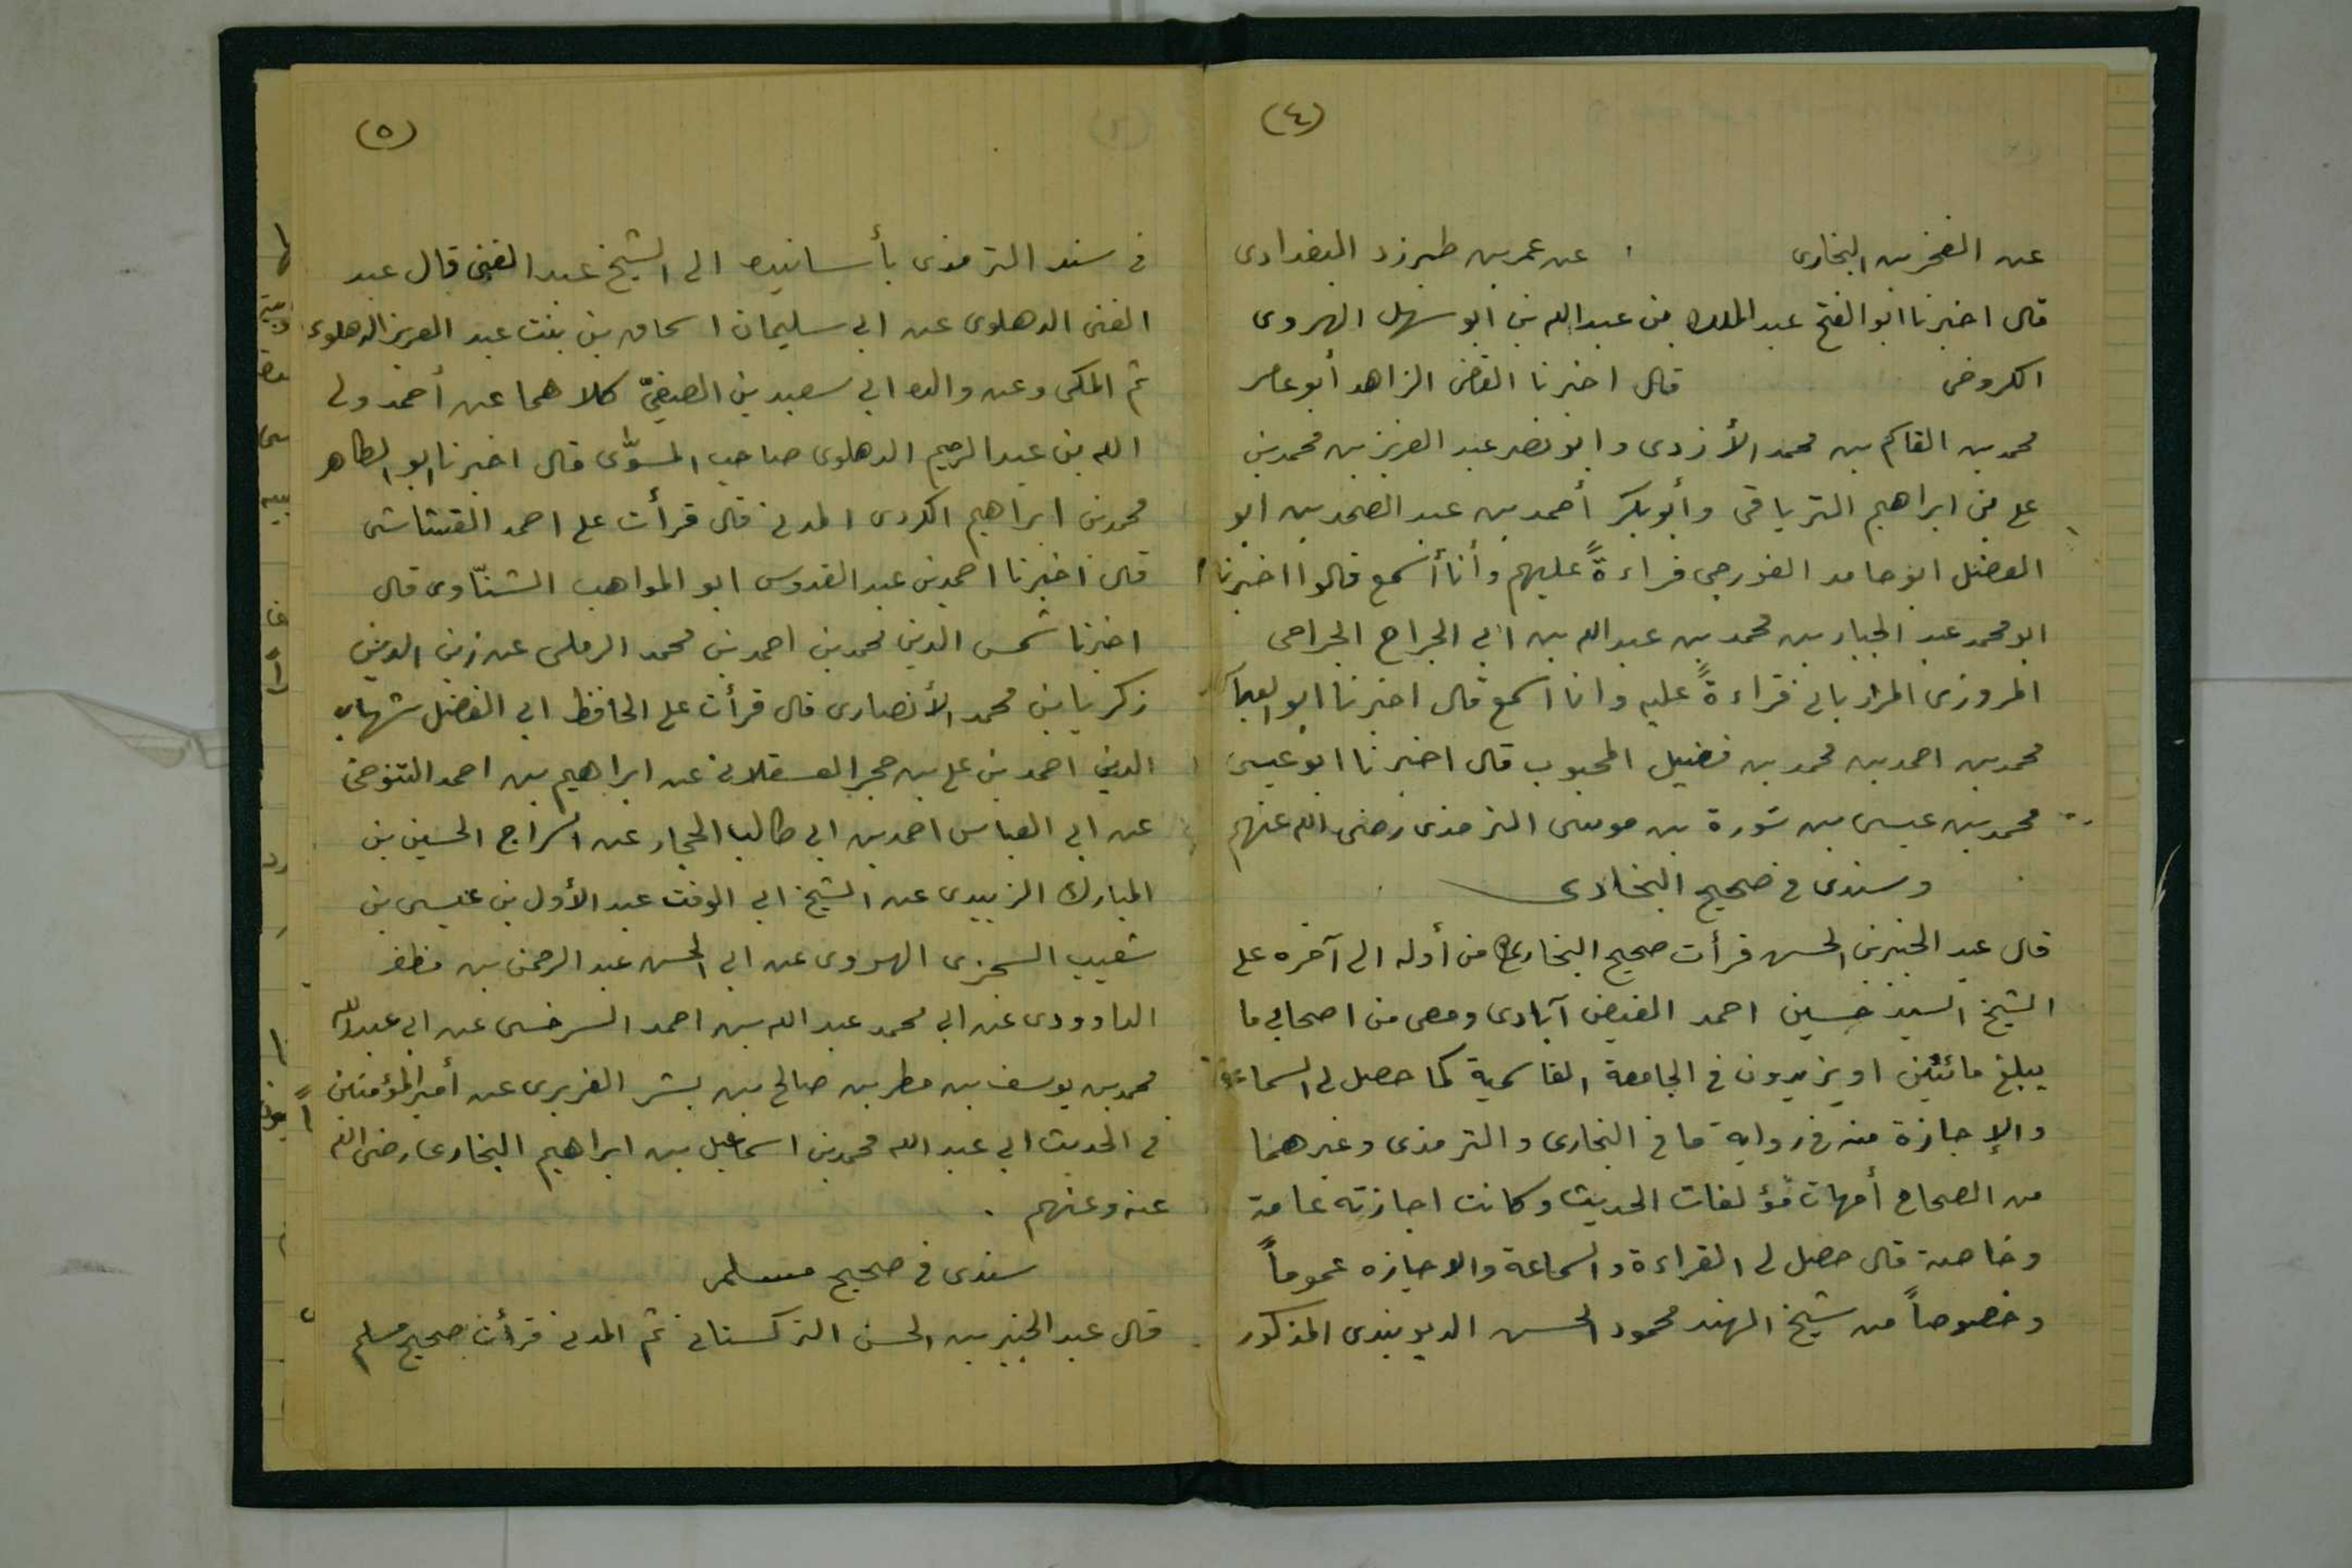 (٤)
عن الفخر بن البخارى عن عمر بن طبرزد البغدادى
قال اخبرنا ابو الفتح عبد الملك بن عبد الله بن ابو سهل الهروى
الكروخى قال اخبرنا القاضى الزاهد أبو عامر
محمد بن القاسم بن محمد الأزدى وابو نصر عبد العزيز بن محمد بن
على بن ابراهيم الترياقى وأبو بكر أحمد بن عبد الصمد بن ابو
الفضل ابو حامد الغورجى قراءةً عليهم وأنا أسمع قالوا اخبرنا
ابو محمد عبد الجبار بن محمد بن عبد الله بن ابى الجراح الجراحى
المروزى المرزبانى قراءةً عليه وانا اسمع قال اخبرنا ابو العباس
محمد بن احمد بن محمد بن فضيل المحبوب قال اخبرنا ابو عيسى
محمد بن عيسى بن سورة بن موسى الترمذى رضى الله عنهم
وسندى فى صحيح البخارى
قال عبد الخبير بن الحسن قرأت صحيح البخارى من أوله الى آخره على
الشيخ السيد حسين احمد الفيض آبادى ومعى من اصحابى ما
يبلغ مائتين او يزيدون فى الجامعة القاسمية كما حصل لى السماعة
والإجازة منه فى رواية ما فى البخارى والترمذى وغيرهما
من الصحاح أمهات مؤلفات الحديث وكانت اجازته عامة
وخاصة قال حصل لى القراءة والسماعة والاجازه عموماً
وخصوصاً من شيخ الهند محمود الحسن الديوبندى المذكور
(٥)
فى سند الترمذى بأسانيده الى الشيخ عبد الغنى قال عبد
الغنى الدهلوى عن ابى سليمان اسحاق بن بنت عبد العزيز الدهلوى
ثم المكى وعن والده ابى سعيد بن الصفىّ كلاهما عن أحمد ولى
الله بن عبد الرحيم الدهلوى صاحب المسوّى قال اخبرنا ابو الطاهر
محمد بن ابراهيم الكردى المدنى قال قرأت على احمد القشاشى
قال اخبرنا احمد بن عبد القدوس ابو المواهب الشنّاوى قال
اخبرنا شمس الدين محمد بن احمد بن محمد الرملى عن زين الدين
زكريا بن محمد الأنصارى قال قرأت على الحافظ ابى الفضل شهاب
الدين احمد بن على بن حجر العسقلانى عن ابراهيم بن احمد التنوخى
عن ابى العباس احمد بن ابى طالب الحجار عن السراج الحسين بن
المبارك الزبيدى عن الشيخ ابى الوقت عبد الأول بن عيسى بن
شعيب السجزى الهروى عن ابى الحسن عبد الرحمن بن مظفر
الداوودى عن ابى محمد عبد الله بن احمد السرخسى عن ابى عبد الله
محمد بن يوسف بن مطر بن صالح بن بشر الفربرى عن أمير المؤمنين
فى الحديث ابى عبد الله محمد بن اسماعيل بن ابراهيم البخارى رضى الله
عنه وعنهم .
سندى فى صحيح مسلم
قال عبد الخبير بن الحسن التركستانى ثم المدنى قرأت صحيح مسلم